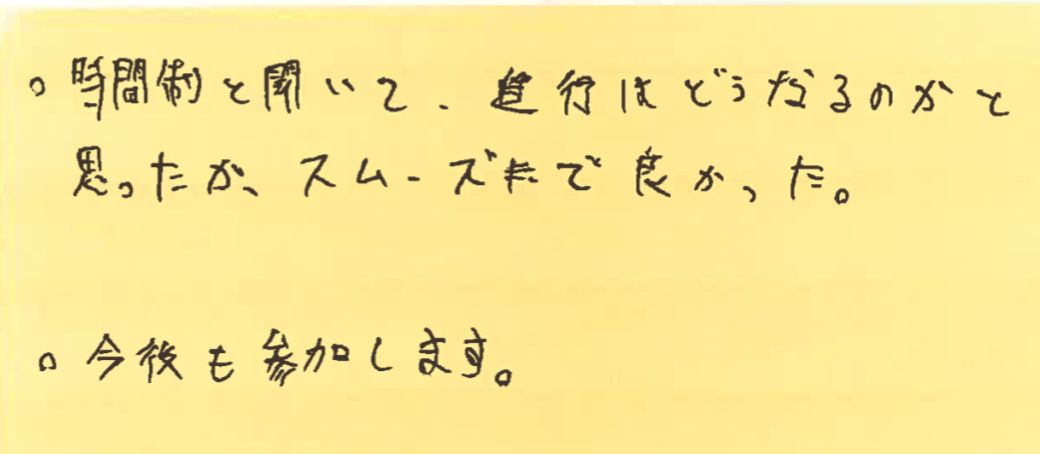 ○ 時間制と聞いて、進行はどうなるのかと
思ったが、スムーズで良かった。
○ 今後も参加します。